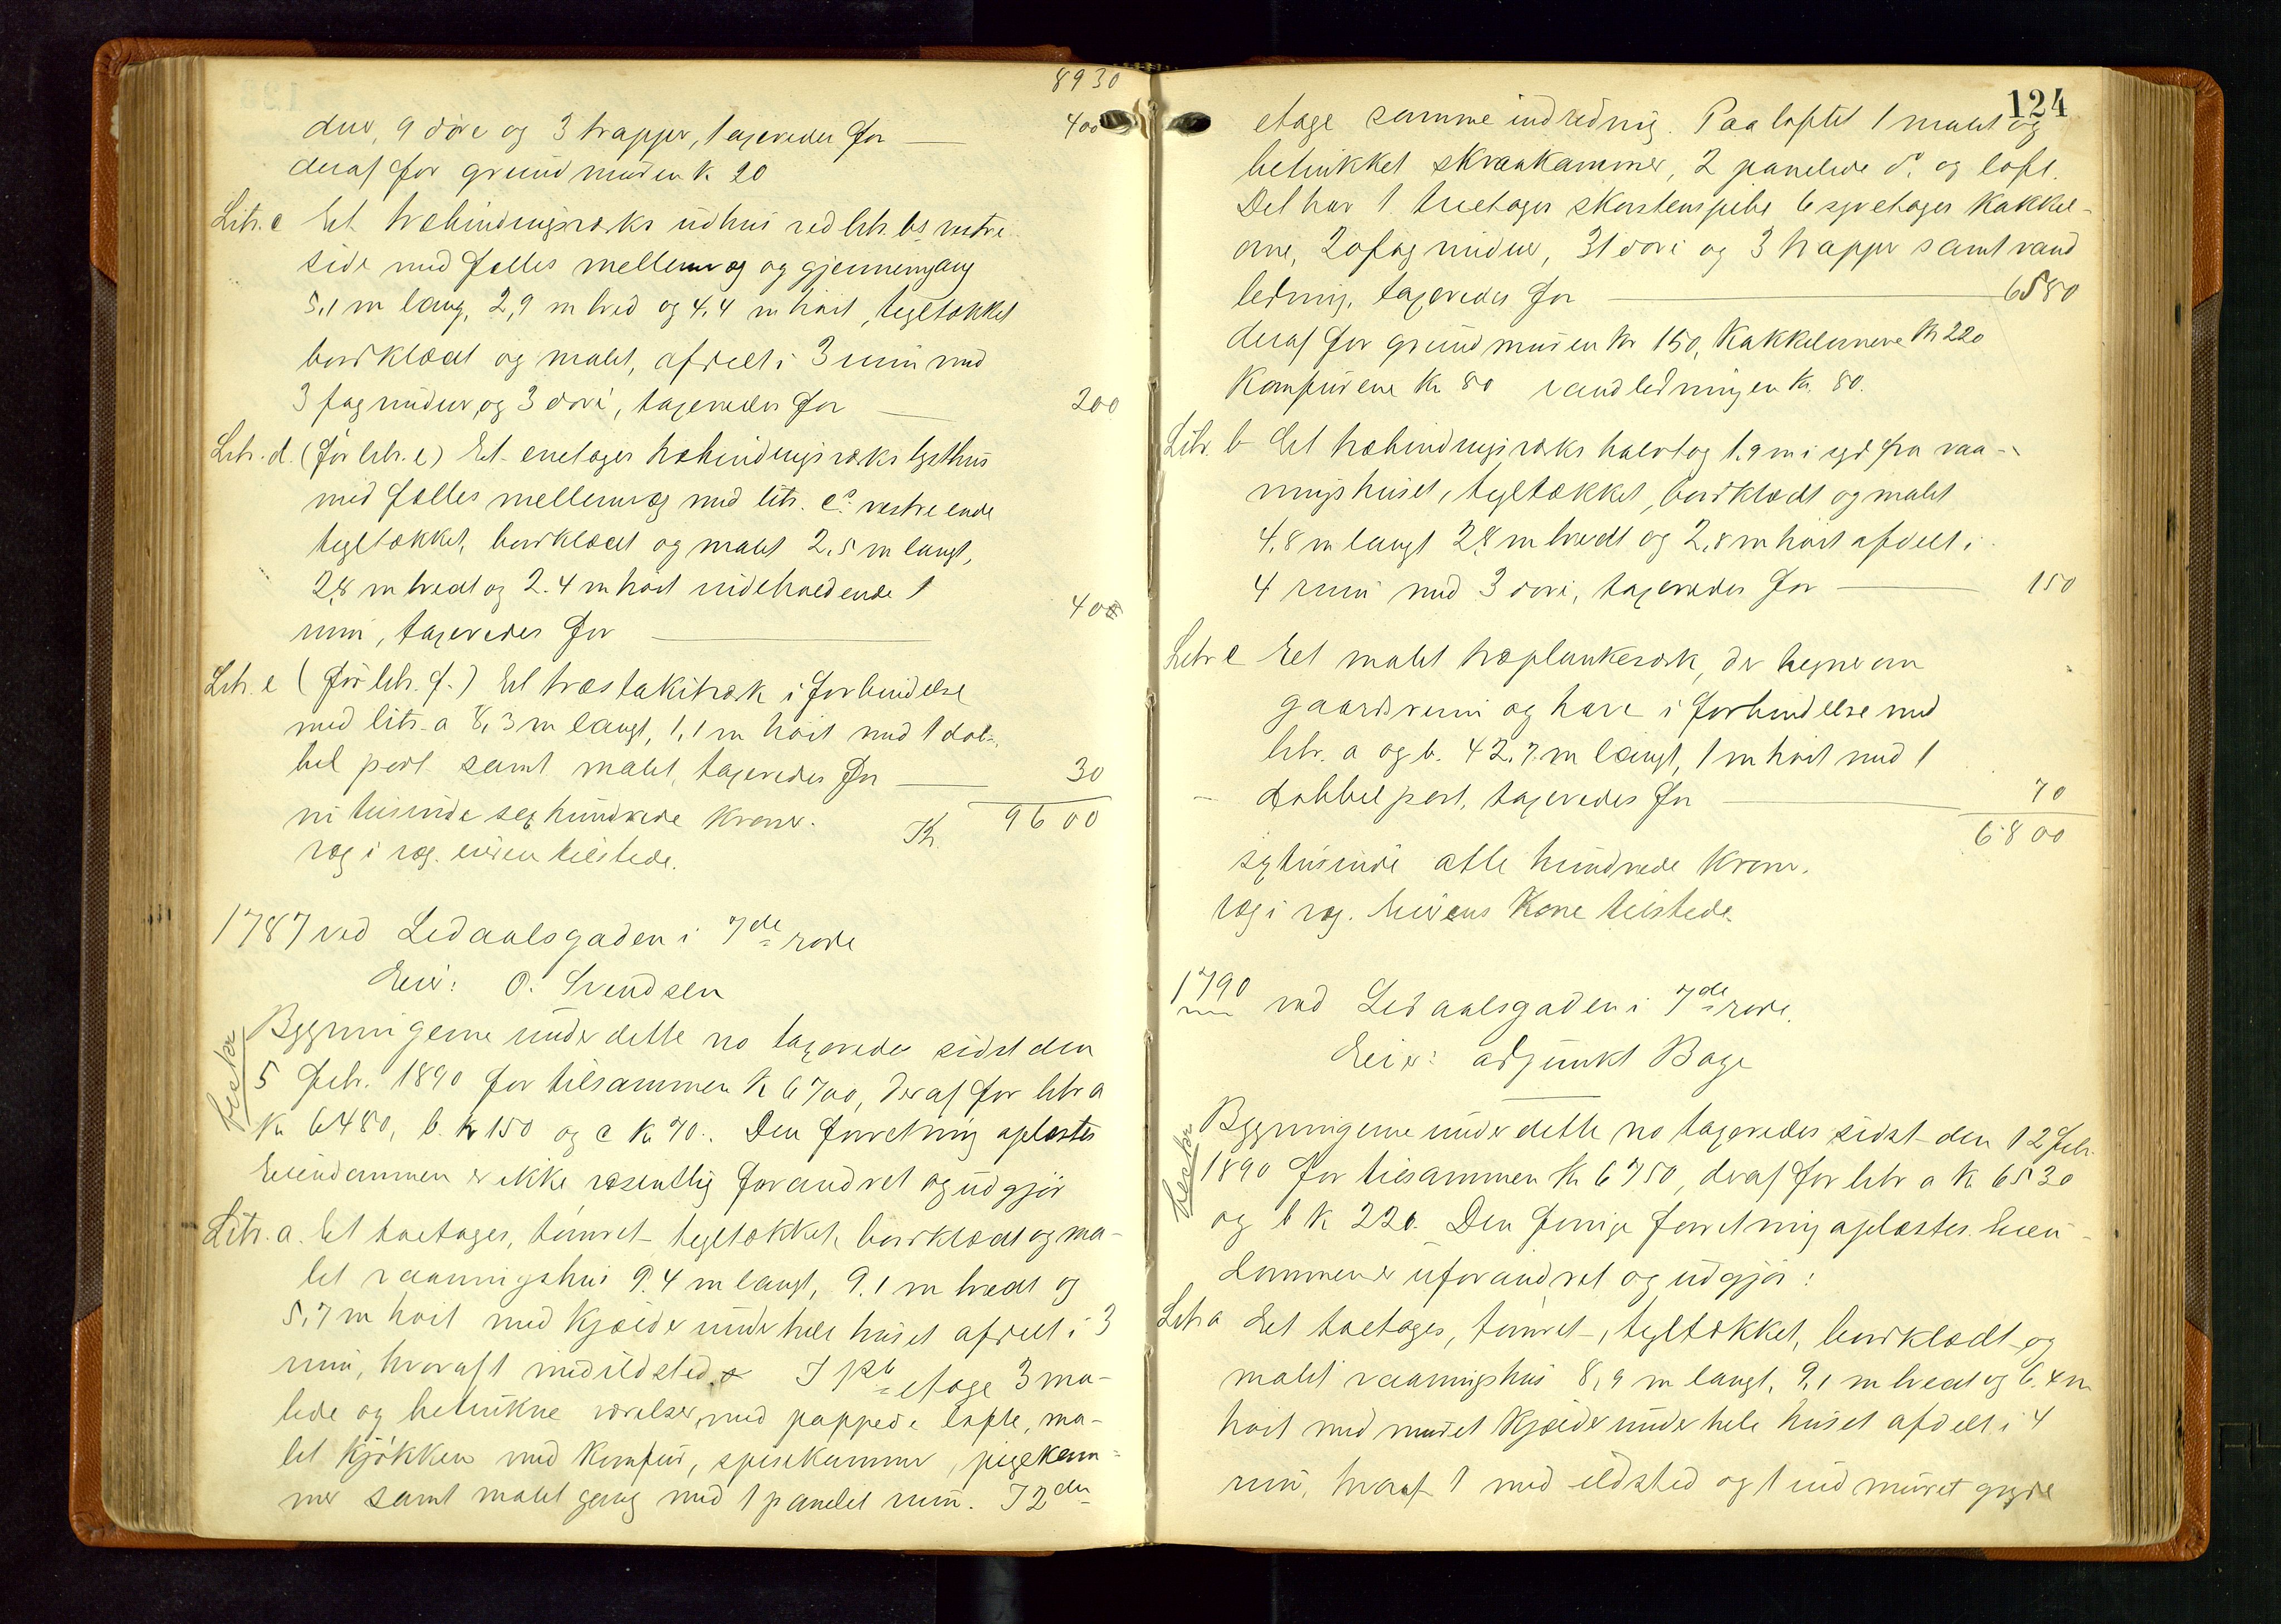 8930
duer, 9 döre og 3 trapper, taxeredes for — 400
deraf for grundmuren k. 20
Litr. c Et træbindingsværks udhus ved litr. bs vestre
side med fælles mellemvæg og gjennemgang
5,1 m lang, 2,9 m bred og 4,4 m höit, tegltækket
bordklædt og malet, afdelt i 3 rum med
3 fag vinduer og 3 döre, taxeredes for — 200
Litr. d. (för litr. e) Et enetages træbindingsværks lysthus
med fælles mellemvæg med litr. cs vestre ende
tegltækket, bordklædt og malet 2,5 m langt,
2,8 m bredt og 2.4 m höit indeholdende 1
rum, taxeredes for — 40
Litr. e (för litr. f.) Et træstakitværk i forbindelse
med litr. a 8,3 m langt, 1,1 m höit med 1 dob-
bel port samt malet, taxeredes for — 30
ni tusinde sex hundrede Kroner. Kr. 9600
væg i væg. eieren tilstede.
1787 ved Ledaalsgaden i 7de rode
Eier: O. Svendsen
Bygningerne under dette no taxeredes sidst den
5 Febr. 1890 for tilsammen k 6700, deraf for litr a
Kr 6480, b. kr 150 og c Kr 70. Den forretning oplæstes
Eiendommen er ikke væsentlig forandret og udgjör
Litr. a. Et toetages, tömret tegltækket, bordklædt og ma-
let vaaningshus 9.4 m langt, 9.1 m bredt og
5,7 m höit med Kjælder under hele huset afdelt i 3
rum, hvoraf 1 med ildsted. I 1ste etage 3 ma-
lede og betrukne værelser med pappede lofte, ma-
let Kjökken med Komfur, spisekammer, pigekam-
mer samt malet gang med 1 panelet rum. I 2den
124
etage samme indredning. Paa loftet 1 malet og
betrukket skraakammer, 2 panelede do. og loft.
Det har 1 treetages skorstenspibe 6 syvetages Kakkel-
ovne, 20 fag vinduer, 31 döre og 3 trapper samt vand
ledning, taxeredes for — 6580
deraf for grundmuren kr 150, Kakkelovnene Kr 220
Komfurene Kr 80 vandledningen Kr. 80.
Litr. b Et træbindingsværks halvtag 1,9 m i syd fra vaa-
ningshuset, tegltækket, bordklædt og malet
4,8 m langt 2,8 m bredt og 2,8 m höit afdelt i
4 rum med 3 döre, taxeredes for — 150
Litr c Et malet træplankeværk, der hegner om
gaardsrum og have i forbindelse med
litr. a og b. 42,7 m langt, 1 m höit med 1
dobbel port, taxeredes for — 70
6800
sextusinde otte hundrede Kroner.
væg i væg. Eierens Kone tilstede.
1790 ved Ledaalsgaden i 7de rode.
Eier: adjunkt Bøge
Bygningerne under dette no taxeredes sidst den 12 Febr.
1890 for tilsammen Kr 6750, deraf for litr a kr 6530
og b k 220. Den forrige forretning oplæstes. Eien-
dommen er uforandret og udgjör:
Litr a Et toetages, tömret, tegltækket, bordklædt og
malet vaaningshus 8,9 m langt, 9,1 m bredt og 6.4 m
höit med muret Kjælder under hele huset afdelt i 4
rum, hvoraf 1 med ildsted og 1 indmuret gryde